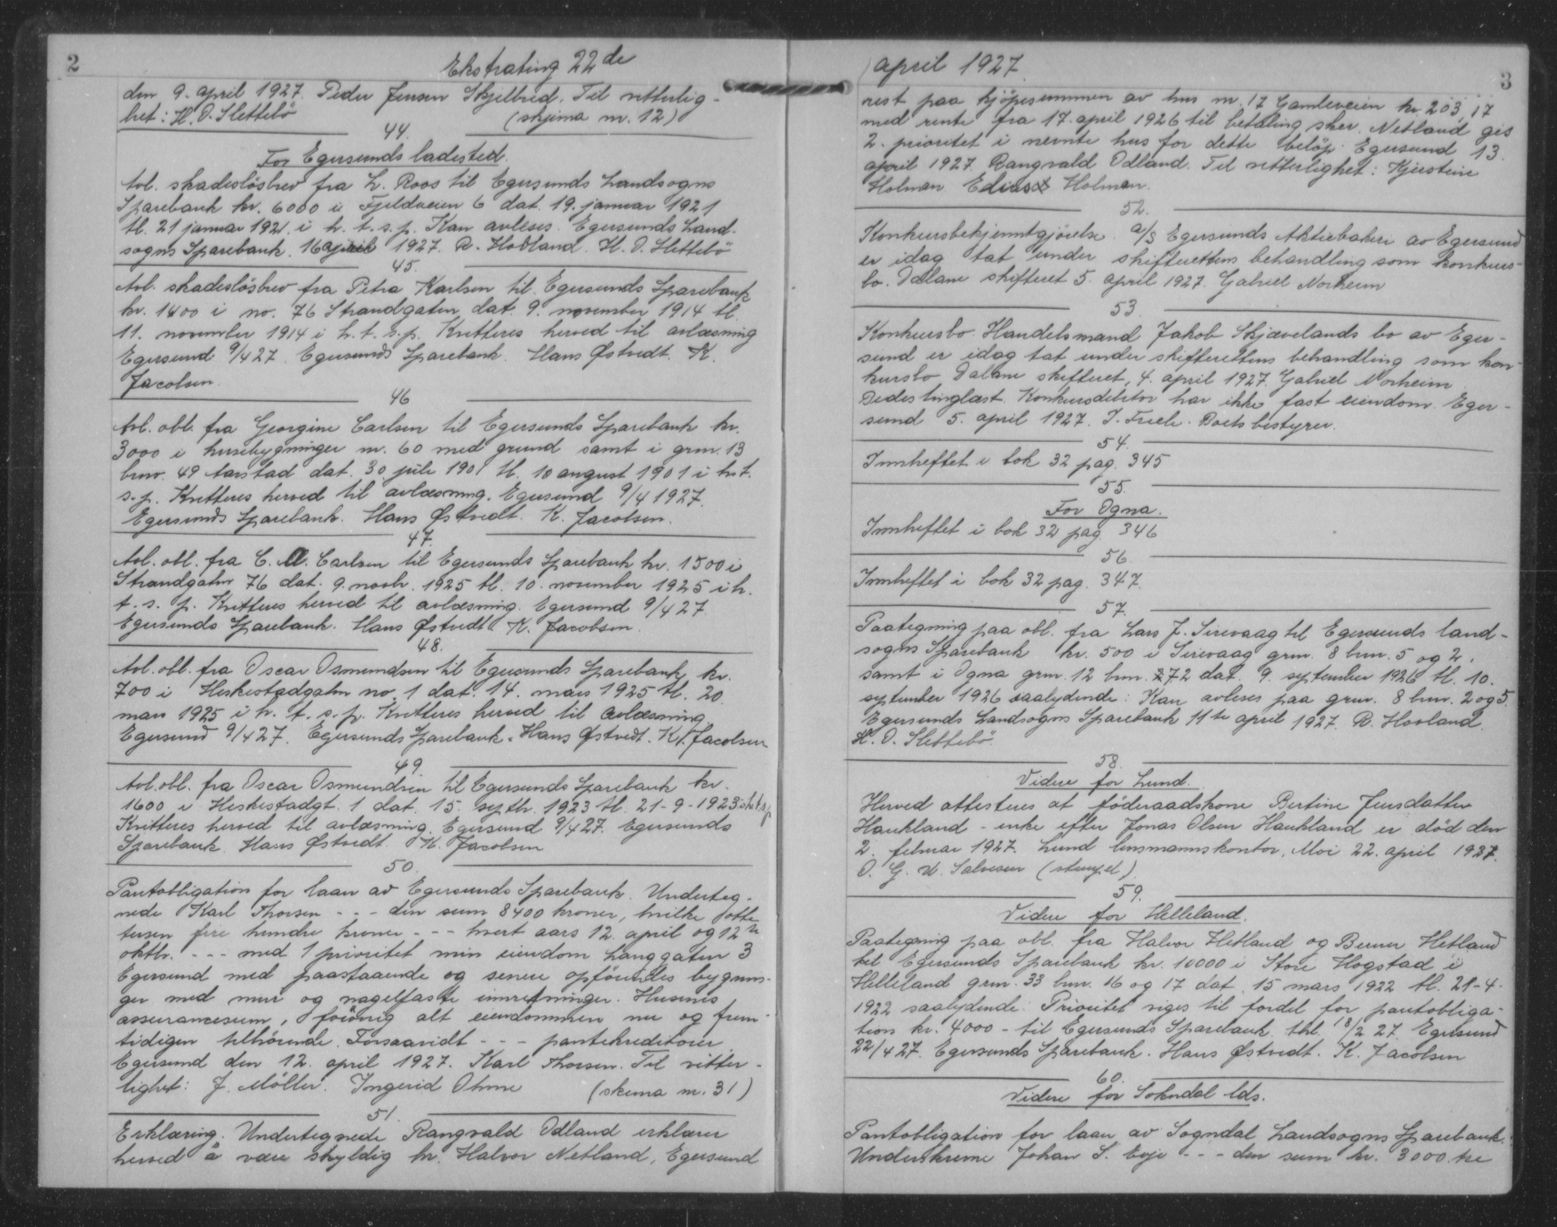 2
Ekstrating 22de
den 9. april 1927. Peder Jensen Skjelbred. Til vitterlig-
het: H. O. Slettebö (skjema nr. 12)
44.
For Egersunds ladested.
Avl. skadeslösbrev fra L. Roos til Egersunds Landsogns
Sparebank kr. 6000 i Fjeldveien 6 dat. 19. januar 1921
tl. 21 januar 1921. i h. t. s. p. Kan avleses. Egersunds Land-
sogns Sparebank. 16 april 1927 R. Hovland. H. O. Slettebö
45.
Avl. skadeslösbrev fra Petra Karlsen til Egersunds Sparebank
kr. 1400 i no. 76 Strandgaten dat. 9. november 1914 tl.
11. november 1914 i h. t. s. p. Kvitteres herved til avlæsning
Egersund 9/4 27. Egersunds Sparebank. Hans Østvedt K.
Jacobsen.
46
Avl. obl. fra Georgine Carlsen til Egersunds Sparebank kr.
3000 i husebygninger nr. 60 med grund samt i grnr. 13
bnr. 49 Aarstad dat. 30 juli 1901 tl. 10 august 1901 i h. t.
s. p. Kvitteres herved til avlæsning. Egersund 9/4 1927.
Egersunds Sparebank. Hans Østvedt. K. Jacobsen.
47.
Avl. obl. fra C. A. Carlsen til Egersunds Sparebank kr. 1500 i
Strandgaten 76 dat. 9. novb. 1925 tl. 10. november 1925 i h.
t. s. p. Kvitteres herved til avlæsning. Egersund 9/4 27.
Egersunds Sparebank. Hans Østvedt K. Jacobsen.
48.
Avl. obl. fra Oscar Osmundsen til Egersunds Sparebank kr.
700 i Heskestadgaten no. 1 dat. 14. mars 1925 tl. 20
mars 1925 i h. t. s. p. Kvitteres herved til avlæsning
Egersund 9/4 27. Egersunds Sparebank. Hans Østvedt. K. Jacobsen
49.
Avl. obl. fra Oscar Osmundsen til Egersunds Sparebank kr.
1600 i Heskestadgt. 1 dat. 15. septb. 1923 tl. 21-9-1923 i h. t. s. p.
Kvitteres herved til avlæsning. Egersund 9/4 27. Egersunds
Sparebank. Hans Østvedt. K. Jacobsen
50.
Pantobligation for laan av Egersunds Sparebank. Underteg-
nede Karl Thorsen - - - den sum 8400 kroner, hvilke otte
tusen fire hundre kroner - - - hvert aars 12. april og 12te
oktbr. - - - med 1 prioritet min eiendom Langgaten 3
Egersund med paastaaende og senere opförendes bygnin-
ger med mur og nagelfaste innretninger. Husenes
assurancesum, foövrig alt eiendommen nu og frem-
tidigen tilhörende. Forsaavidt - - - pantekreditorer
Egersund den 12. april 1927. Karl Thorsen. Til vitter-
lighet: J. Möller. Ingerid Ohme (skema nr. 31)
51.
Erklæring. Undertegnede Rangvald Odland erklærer
herved å være skyldig hr. Halvor Netland, Egersund
april 1927.
3
rest paa kjöpesummen av hus nr. 17 Gamleveien kr. 203,17
med rente fra 17. april 1926 til betaling sker. Netland gis
2. prioritet i nevnte hus for dette belöp. Egersund 13.
april 1927. Rangvald Odland. Til vitterlighet: Kjerstine
Holman Holman.
52.
Konkursbekjenntgjörelse. A/S Egersunds Aktiebakeri av Egersund
er idag tat under skifterettens behandling som konkurs-
bo. Dalane skifteret 5. april 1927. Gabriel Norheim
53.
Konkursbo. Handelsmand Jakob Skjævelands bo av Eger-
sund er idag tat under skifterettens behandling som kon-
kursbo. Dalane skifteret, 4. april 1927. Gabriel Norheim
Bedes tinglæst. Konkursdebitor har ikke fast eiendom. Eger-
sund 5. april 1927. J. Friele. Boets bestyrer.
54.
Innheftet i bok 32 pag. 345
55.
For Ogna.
Innheftet i bok 32 pag. 346
56.
Innheftet i bok 32 pag. 347.
57.
Paategning paa obl. fra Lars J. Sirevaag til Egersunds land-
sogns Sparebank kr. 500 i Sirevaag grnr. 8 bnr. 5 og 2.
samt i Ogna grnr. 12 bnr. 272 dat. 9. september 1926 tl. 10.
september 1926 saalydende: Kan avleses paa grnr. 8 bnr. 2 og 5.
Egersunds Landsogns Sparebank 11te april 1927. R. Hovland.
H. O. Slettebö
58.
Videre for Lund.
Herved attesteres at föderaadskone Bertine Jensdatter
Haukland - enke efter Jonas Olsen Haukland er död den
2. februar 1927. Lund lensmannskontor, Moi 22. april 1927.
O. G. U. Salvesen (stempel)
59.
Videre for Helleland.
Paategning paa obl. fra Halvor Hetland og Berner Hetland
til Egersunds Sparebank kr. 10000 i Store Hogstad i
Helleland grnr. 33 bnr. 16 og 17 dat. 15 mars 1922 tl. 21-4-
1922 saalydende: Prioritet viges til fordel for pantobliga-
tion kr. 4000 - til Egersunds Sparebank thl. 18/2 27. Egersund
22/4 27. Egersunds Sparebank. Hans Østvedt. K. Jacobsen
60.
Videre for Sokndal lds.
Pantobligation for laan av Sogndal Landsogns Sparebank.
Underskrevne Johan S. Eeje - - - den sum kr. 3000. tre